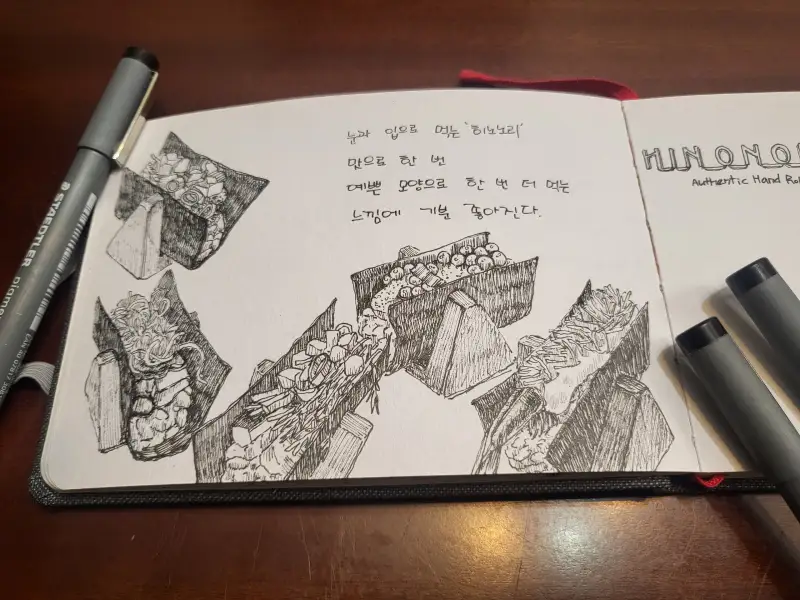 눈과 입으로 먹는 '히노노리'
맛으로 한 번
예쁜 모양으로 한 번 더 먹는
느낌에 기분 좋아진다.
HINONO
Authentic Hand Rol
STAEDTLER
pigme